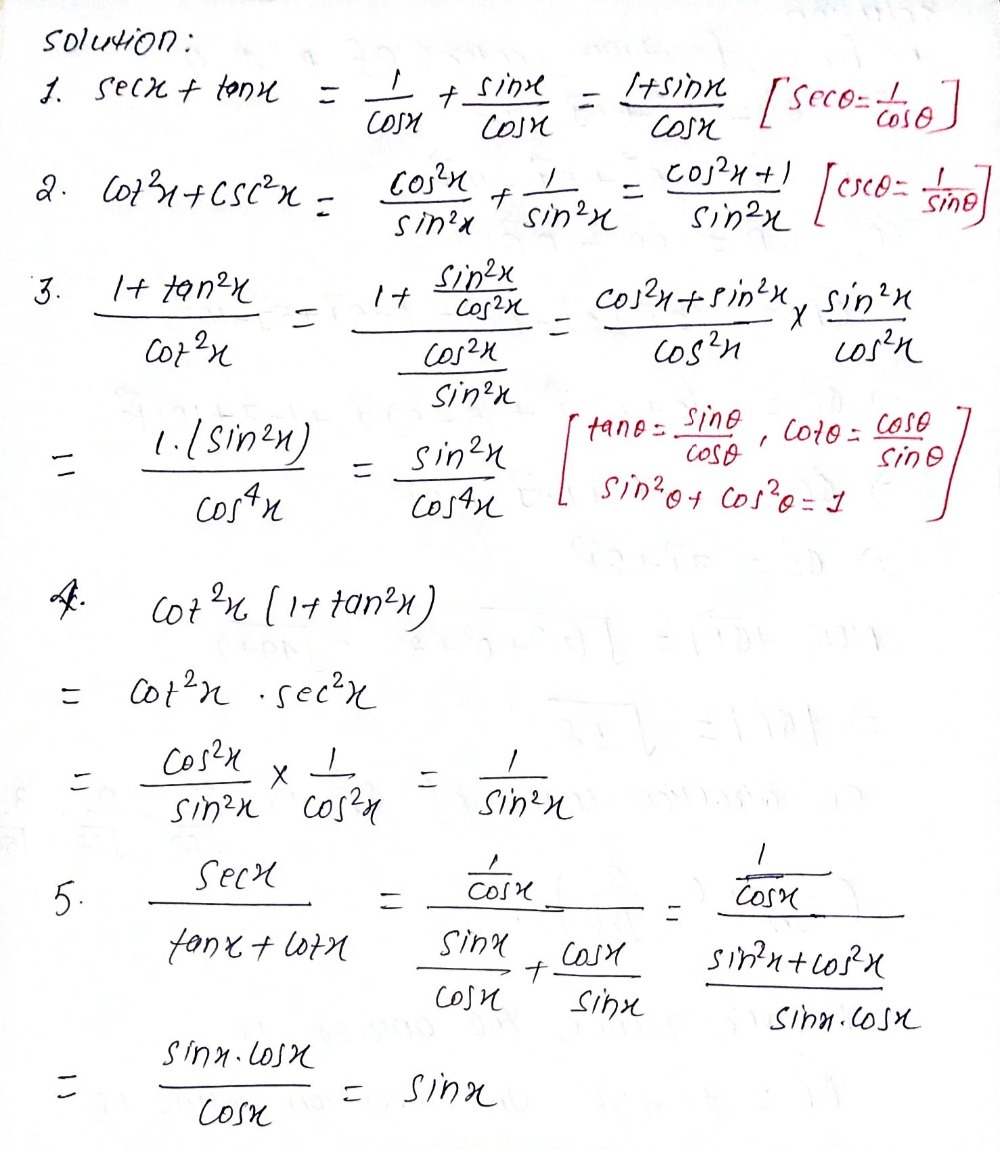 Solution:
1. secx + tanx = 1/cosx + sinx/cosx = 1+sinx/cosx [secθ = 1/cosθ]
2. cot²x + csc²x = cos²x/sin²x + 1/sin²x = cos²x+1/sin²x [cscθ = 1/sinθ]
3. 1+tan²x/cot²x = (1+ sin²x/cos²x)/(cos²x/sin²x) = cos²x+sin²x/cos²x × sin²x/cos²x
= 1.(sin²x)/cos⁴x = sin²x/cos⁴x [tanθ = sinθ/cosθ, cotθ = cosθ/sinθ
sin²θ + cos²θ = 1]
4. cot²x (1+tan²x)
= cot²x . sec²x
= cos²x/sin²x × 1/cos²x = 1/sin²x
5. secx/tanx+cotx = (1/cosx)/(sinx/cosx + cosx/sinx) = (1/cosx)/(sin²x+cos²x/sinx.cosx)
= sinx.cosx/cosx = sinx